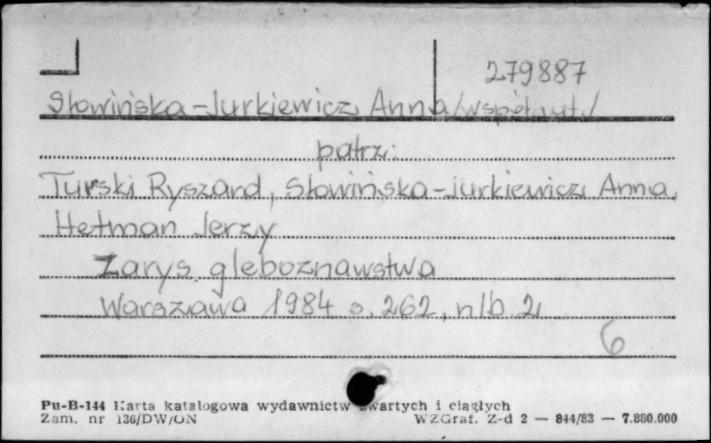 279887
Słowińska-Jurkiewicz Anna /współaut./
patrz:
Turski Ryszard, Słowińska-Jurkiewicz Anna,
Hetman Jerzy
Zarys gleboznawstwa
Warszawa 1984 s. 262, nlb. 2
6
Pu-B-144 Karta katalogowa wydawnictw zwartych i ciągłych
Zam. nr 136/DW/ON WZGraf. Z-d 2 — 844/83 — 7.880.000